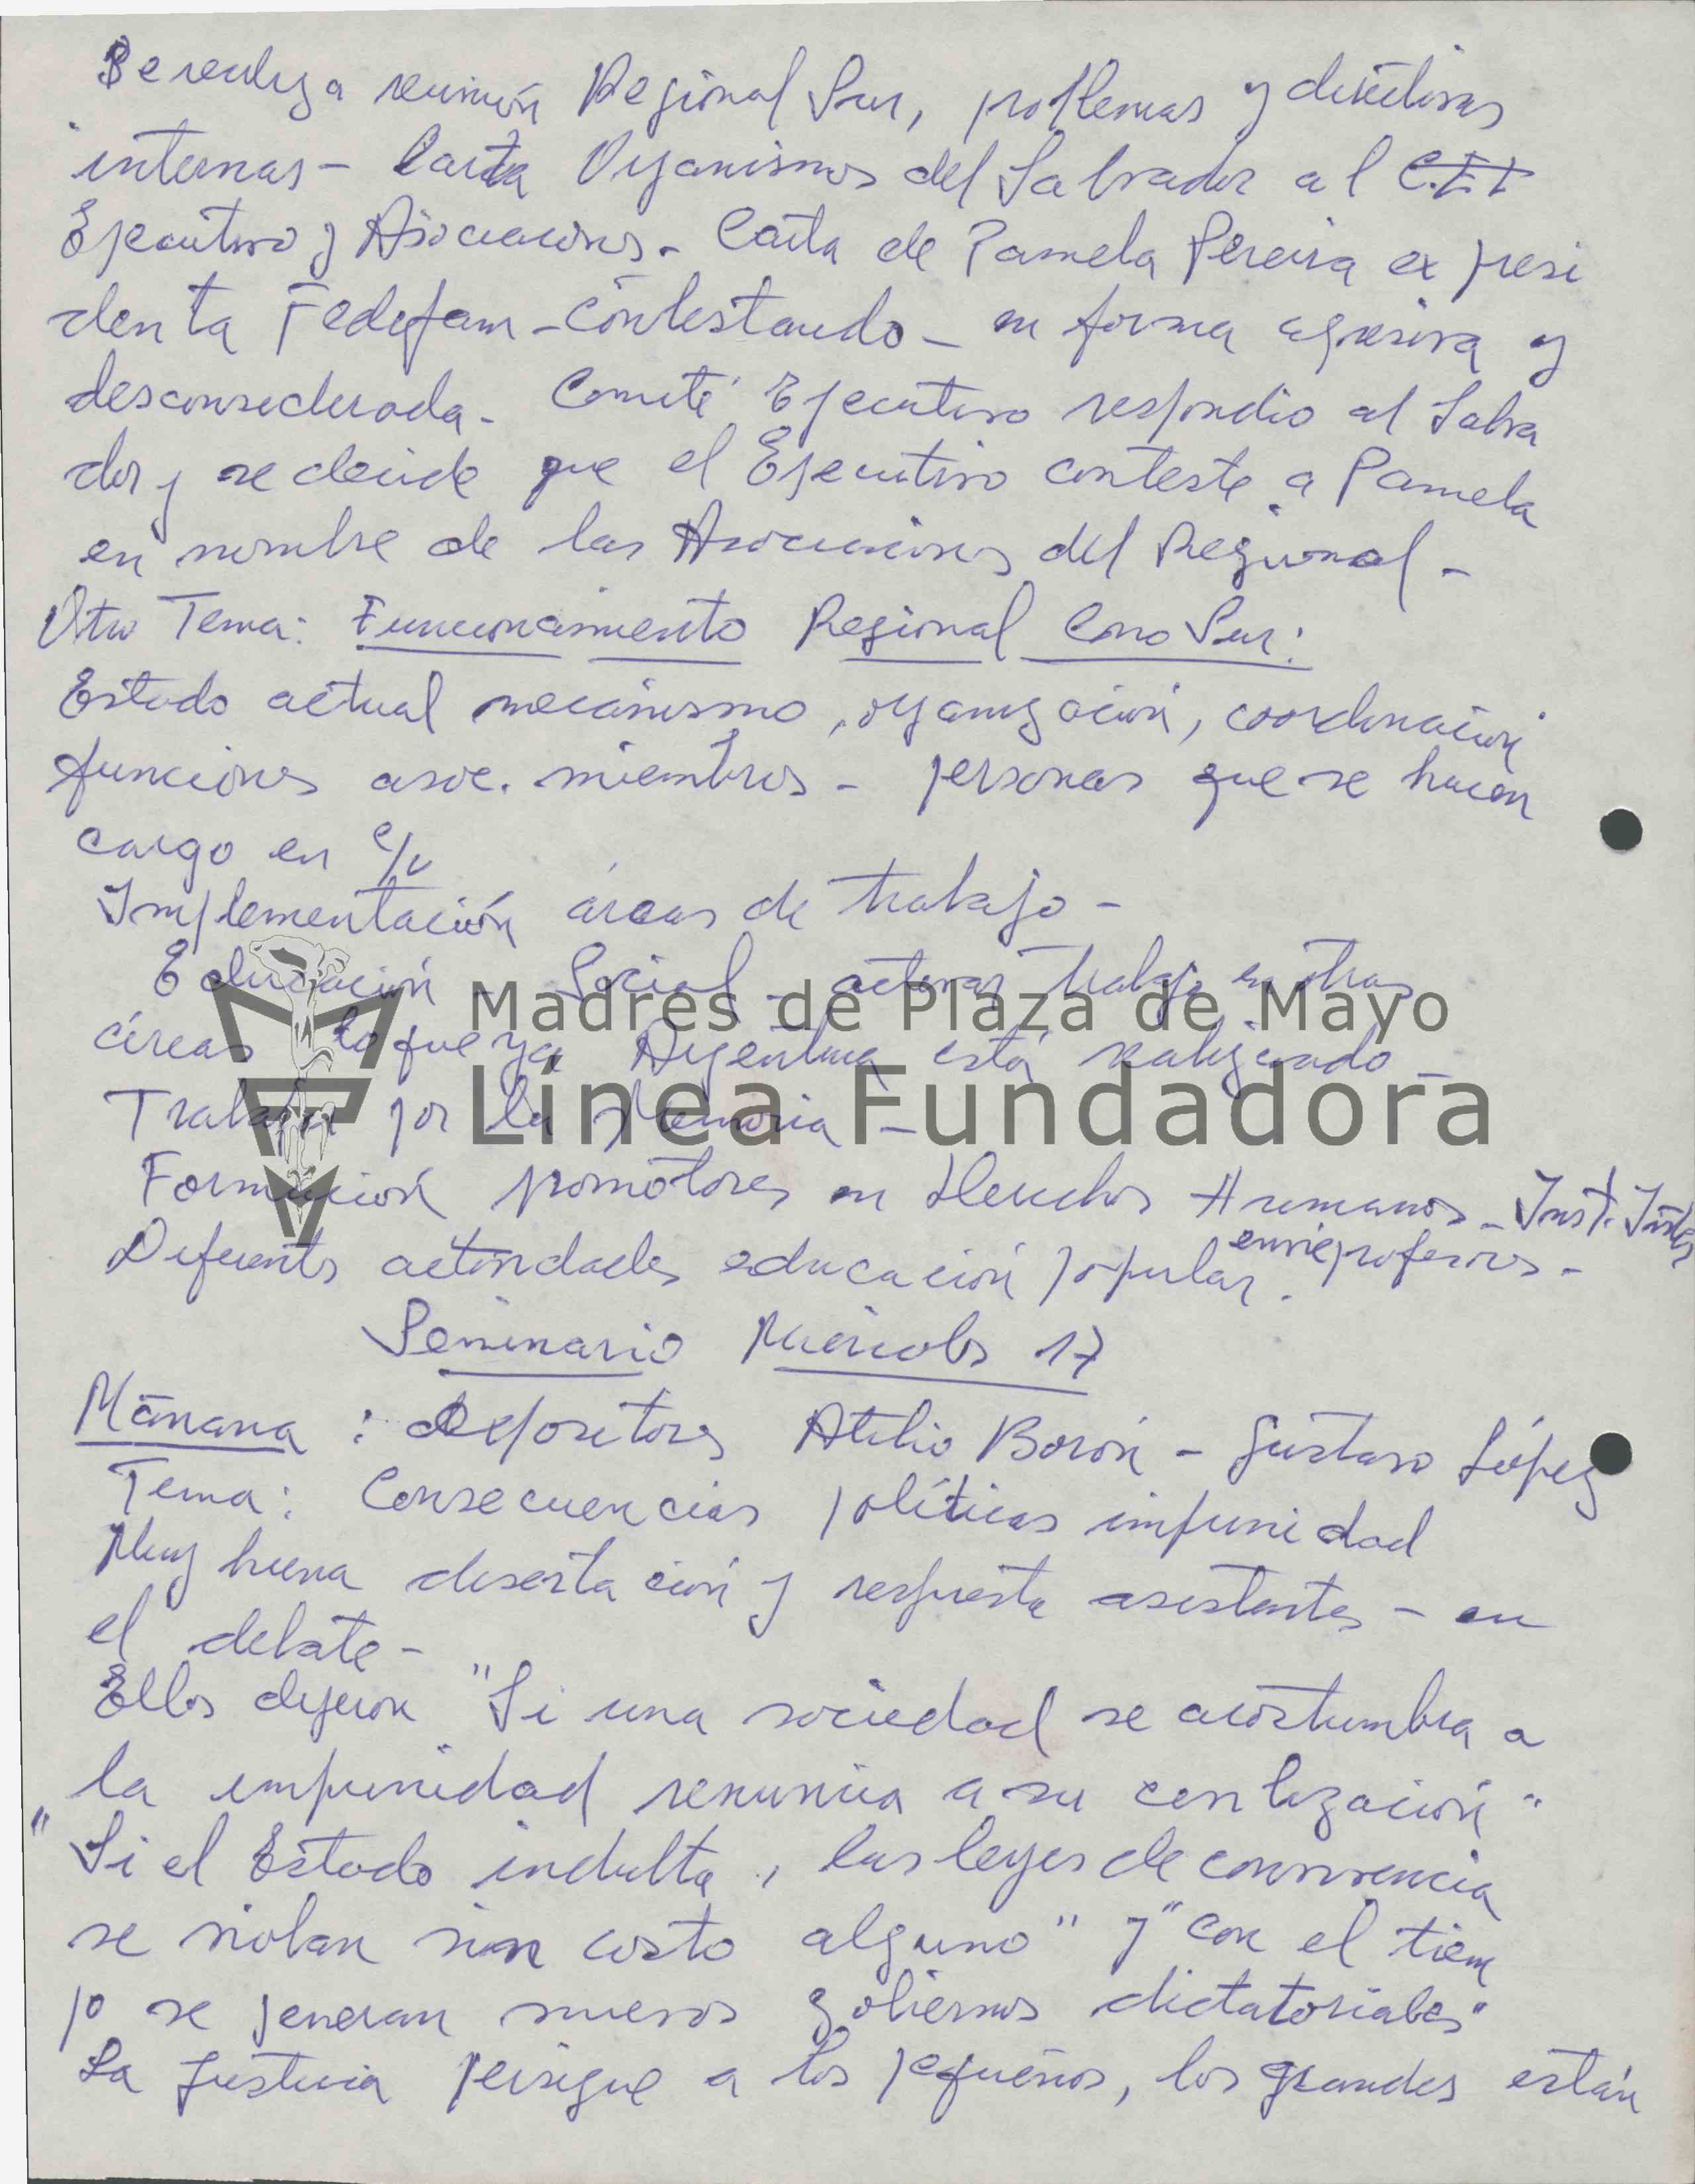 Se realiza reunión Regional Sur, problemas y directivas
internas - Carta Organismos del Salvador al C.E.I
Ejecutivo y Asociaciones. Carta de Pamela Pereira ex presi
denta Fedefam - contestando - en forma agresiva y
desconsiderada. Comité Ejecutivo respondio al Salva
dor y se decide que el Ejecutivo conteste a Pamela
en nombre de las Asociaciones del Regional -
Otro Tema: Funcionamiento Regional Cono Sur:
Estado actual mecanismo, organización, coordinación
funciones asoc. miembros - personas que se hacen
cargo en c/u
Implementación áreas de trabajo -
Educación - Social - activar trabajo en otras
áreas lo que ya Argentina está realizando -
Madres de Plaza de Mayo
Línea Fundadora
Trabajo por la Memoria -
Formación promotores en Derechos Humanos - Inst.
Diferentes actividades educación popular. envie profesores -
Seminario Miércoles 17
Mañana : expositores Atilio Borón - Gustavo López
Tema: Consecuencias políticas impunidad
Muy buena disertación y respuesta asistentes - en
el debate -
Ellos dijeron "Si una sociedad se acostumbra a
la impunidad renuncia a su civilización"
"Si el Estado indulta, las leyes de convivencia
se violan sin costo alguno" y "con el tiem
po se generan nuevos gobiernos dictatoriales"
La Justicia persigue a los pequeños, los grandes están